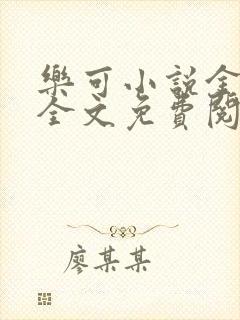 樂可小説全
全文免費閱
廖某某